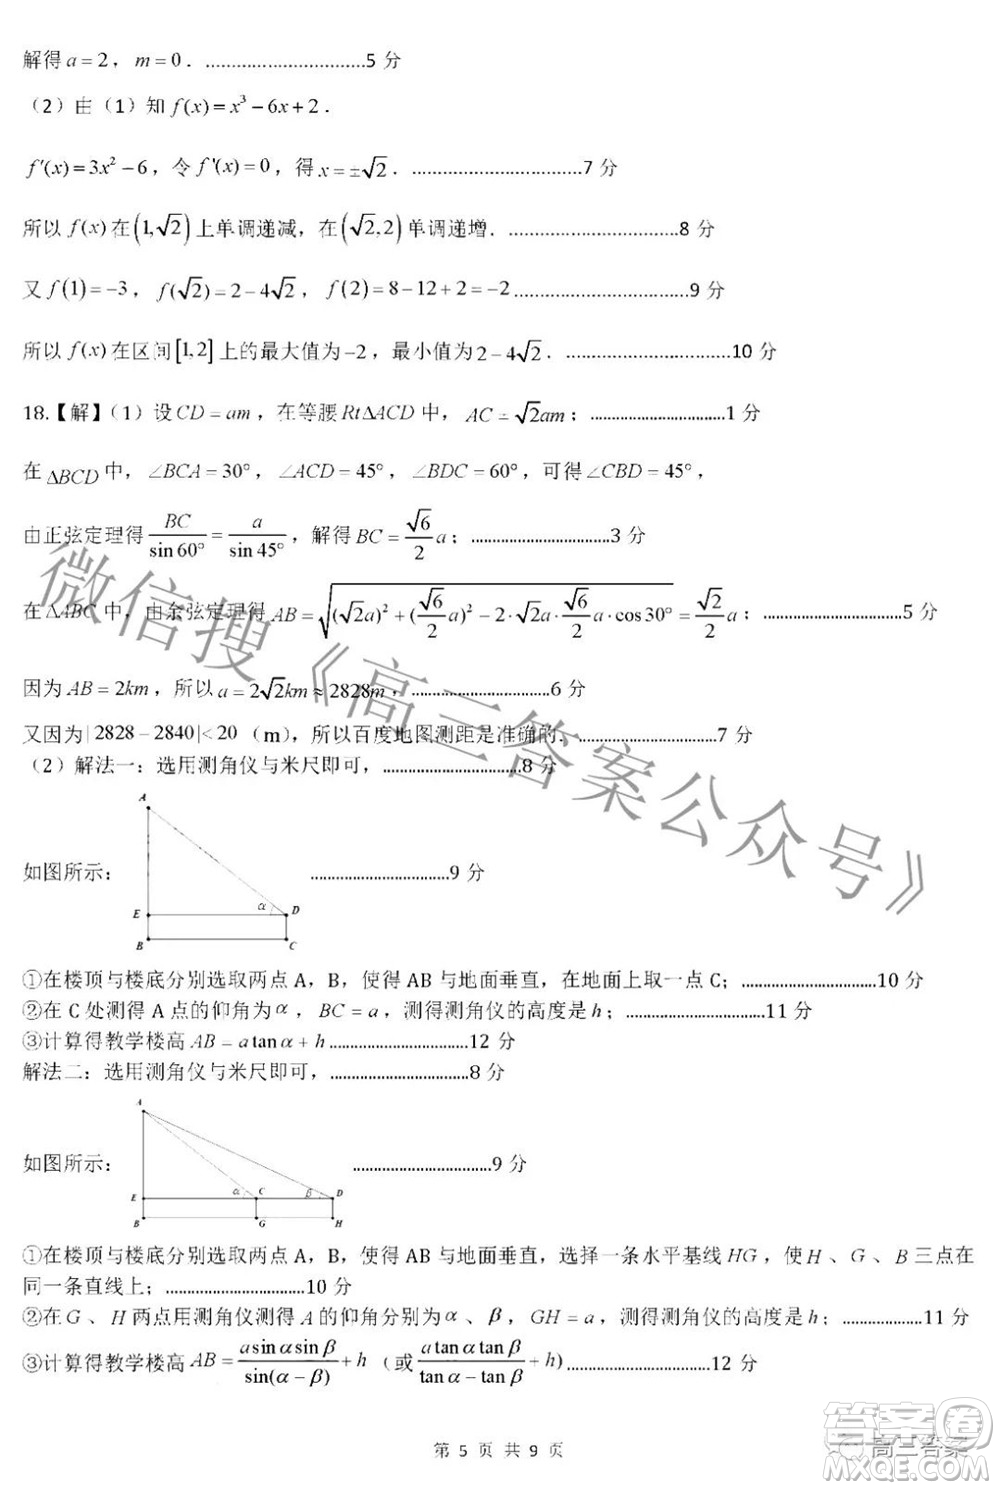 解得 a = 2，m = 0．...............................5 分
（2）由（1）知 f(x) = x³ − 6x + 2．
f′(x) = 3x² − 6，令 f′(x) = 0，得 x = ±√2．.................................7 分
所以 f(x) 在 (1,√2) 上单调递减，在 (√2,2) 单调递增．.................................8 分
又 f(1) = −3，f(√2) = 2 − 4√2，f(2) = 8 − 12 + 2 = −2..................................9 分
所以 f(x) 在区间 [1,2] 上的最大值为 −2，最小值为 2 − 4√2．................................10 分
18.【解】（1）设 CD = am，在等腰 RtΔACD 中，AC = √2am；..........................1 分
在 ΔBCD 中，∠BCA = 30°，∠ACD = 45°，∠BDC = 60°，可得 ∠CBD = 45°，
由正弦定理得 BC/sin60° = a/sin45°，解得 BC = (√6/2)a；...........................3 分
在 ΔABC 中，由余弦定理得 AB = √((√2a)² + (√6/2 a)² − 2·√2a·√6/2 a·cos30°) = (√2/2)a；.................................5 分
因为 AB = 2km，所以 a = 2√2km ≈ 2828m，...........................6 分
又因为 |2828 − 2840| < 20（m），所以百度地图测距是准确的．...........................7 分
（2）解法一：选用测角仪与米尺即可，...........................8 分
A
如图所示：...........................9 分
E α D
B C
①在楼顶与楼底分别选取两点 A，B，使得 AB 与地面垂直，在地面上取一点 C；..........................10 分
②在 C 处测得 A 点的仰角为 α，BC = a，测得测角仪的高度是 h；...........................11 分
③计算得教学楼高 AB = a tan α + h...........................12 分
解法二：选用测角仪与米尺即可，...........................8 分
A
如图所示：...........................9 分
E α C β D
B G H
①在楼顶与楼底分别选取两点 A，B，使得 AB 与地面垂直，选择一条水平基线 HG，使 H、G、B 三点在
同一条直线上；...........................10 分
②在 G、H 两点用测角仪测得 A 的仰角分别为 α、β，GH = a，测得测角仪的高度是 h；................11 分
③计算得教学楼高 AB = (a sin α sin β)/sin(α − β) + h（或 (a tan α tan β)/(tan α − tan β) + h）...........................12 分
第 5 页 共 9 页
微信搜《高三答案公众号》
答案圈
高三答案
MXQE.COM